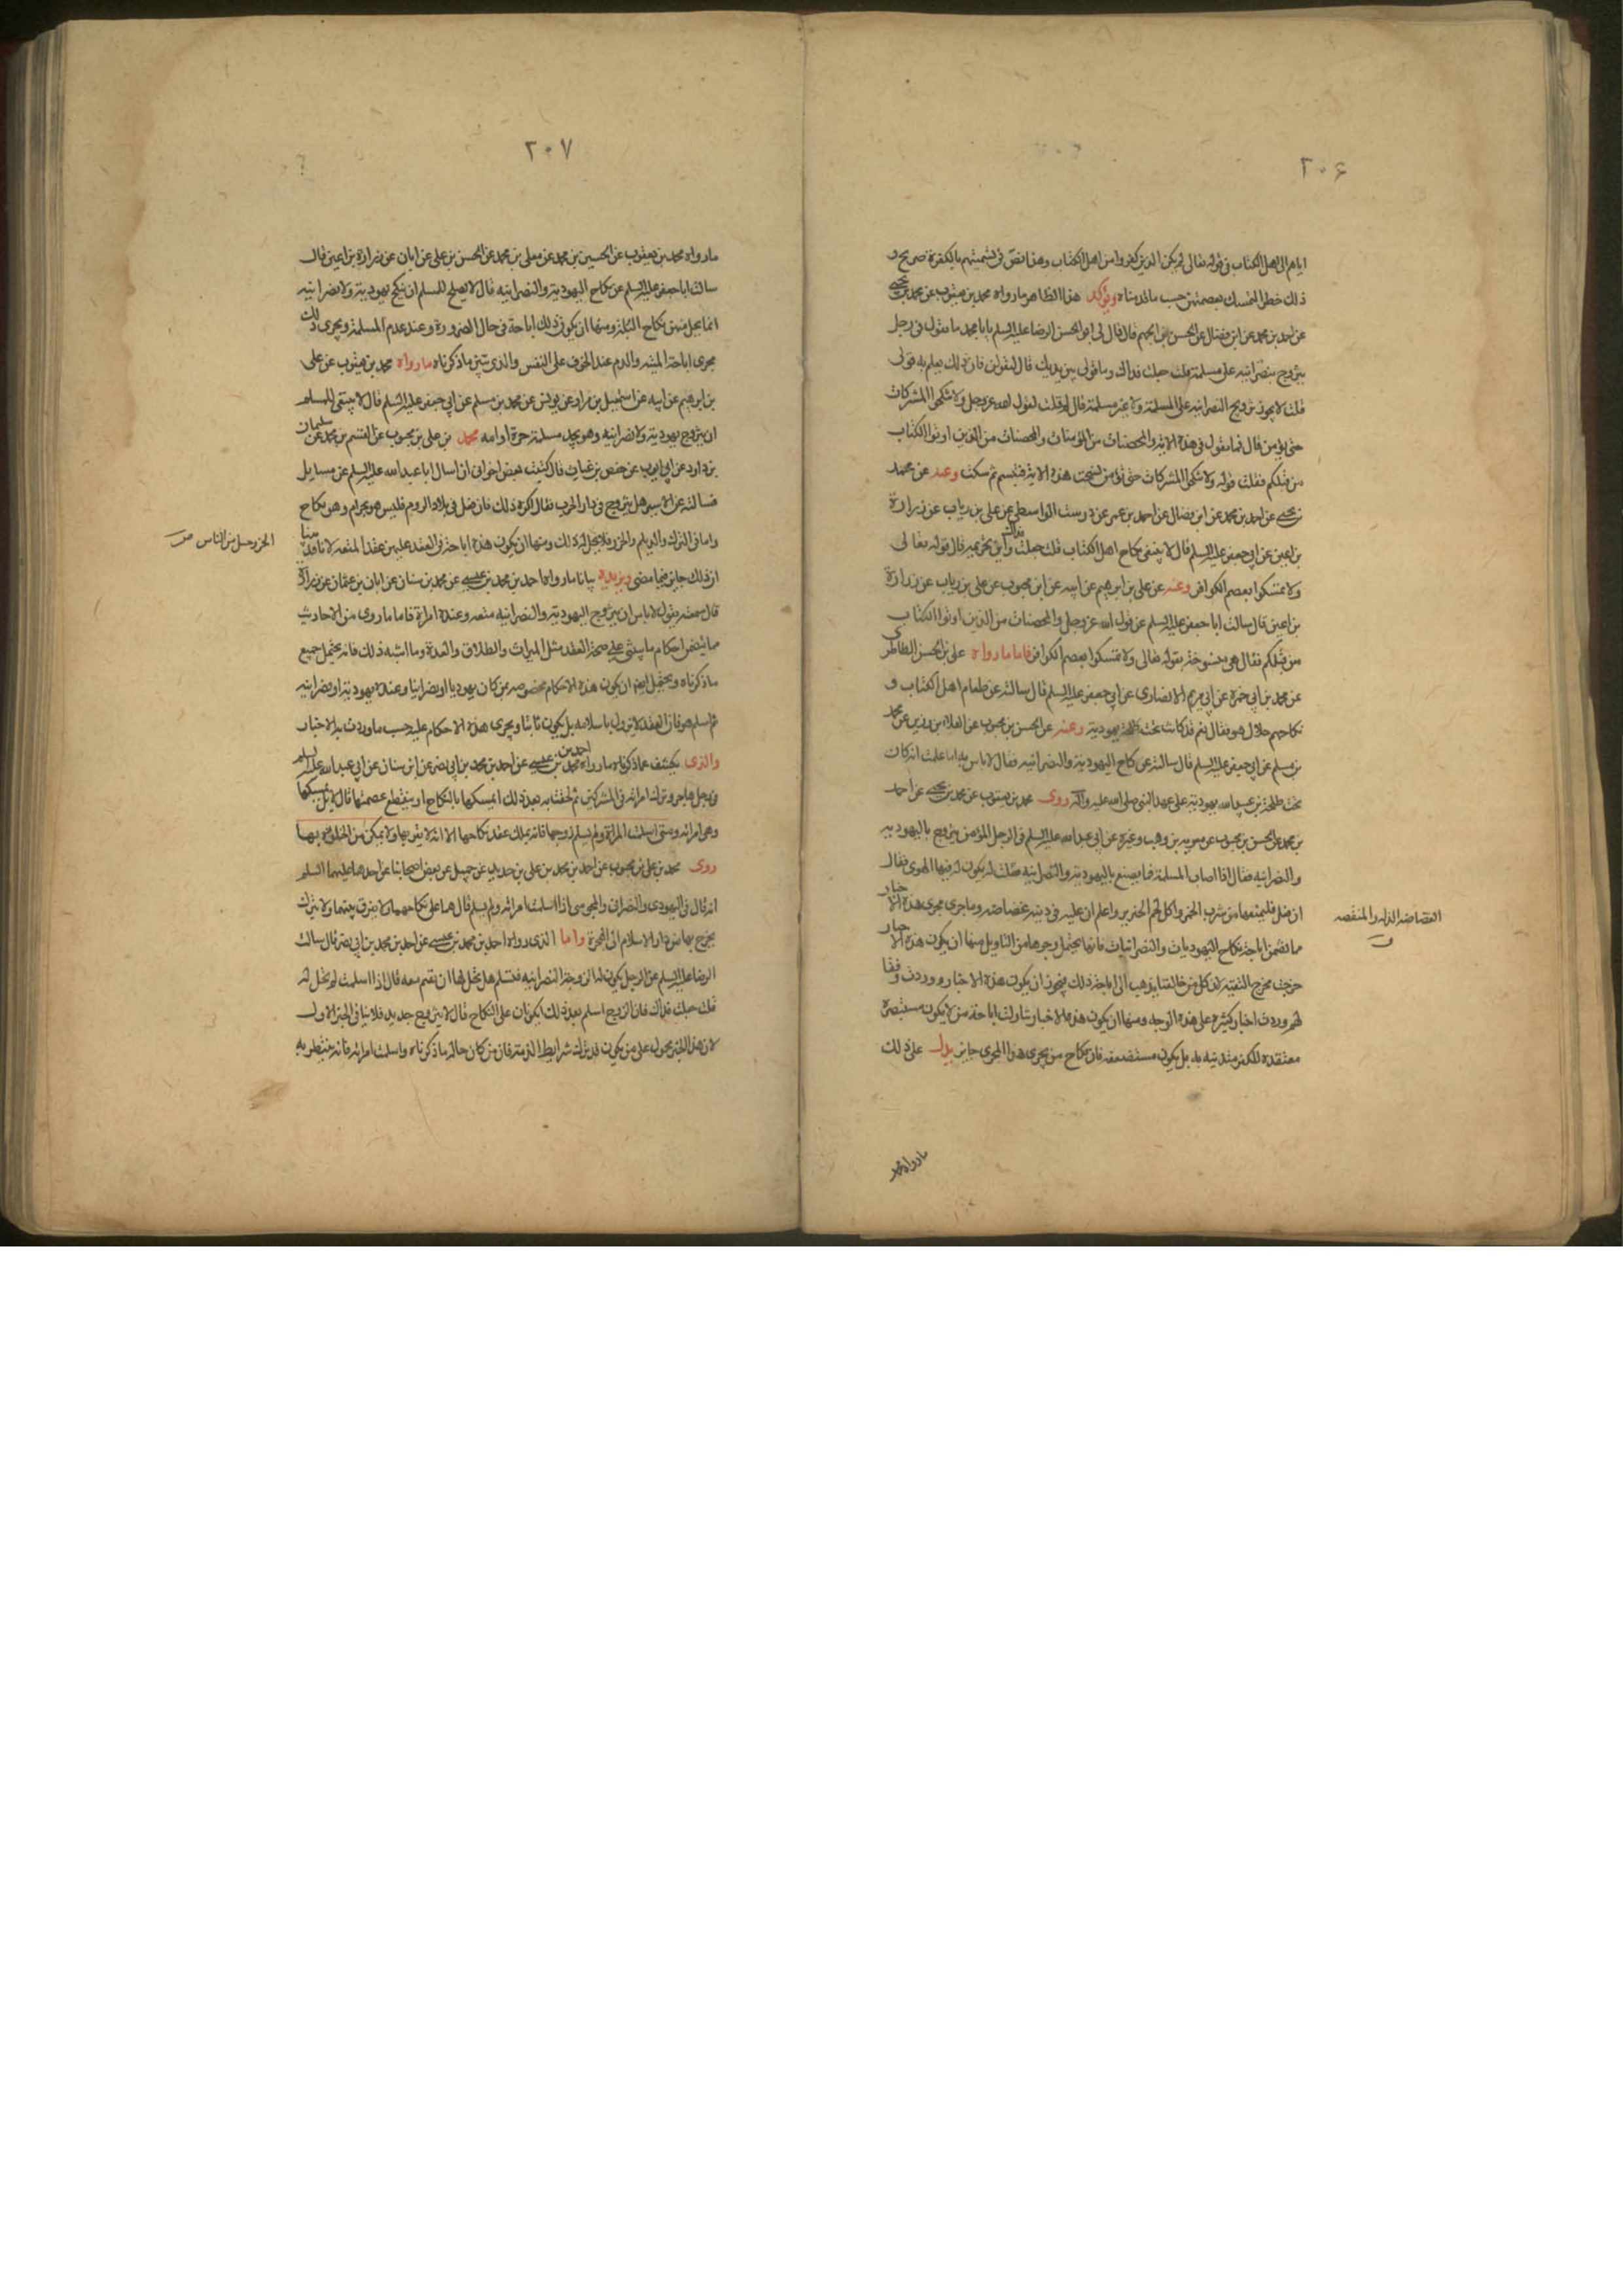 ٢٠۶
اياهم الى اهل الكتاب فى قوله تعالى لم يكن الذين كفروا من اهل الكتاب وهذا نص فى تسميتهم بالكفرة صريح و
ذلك خطر التمسك بعصمتهن حسب ما قدمناه ويؤكد هذا الظاهر ما رواه محمد بن يعقوب عن محمد بن يحيى
عن احمد بن محمد عن ابن فضال عن الحسن بن الجهم قال قال لى ابو الحسن الرضا عليه السلم يا با محمد ما تقول فى رجل
يتزوج بنصرانية على مسلمة قلت جعلت فداك وما قولى بين يديك قال لتقولن فان ذلك يعلم به قولى
قلت لا يجوز تزويج النصرانية على المسلمة ولا غير مسلمة قال لم قلت لقول الله عز وجل ولا تنكحوا المشركات
حتى يؤمن قال فما تقول فى هذه الاية والمحصنات من المؤمنات والمحصنات من الذين اوتوا الكتاب
من قبلكم فقلت قوله ولا تنكحوا المشركات حتى يؤمن نسخت هذه الاية فتبسم ثم سكت وعنه عن محمد
بن يحيى عن احمد بن محمد عن ابن فضال عن احمد بن عمر عن درست الواسطى عن على بن رياب عن زرارة
بن اعين عن ابى جعفر عليه السلم قال لا ينبغى نكاح اهل الكتاب قلت جعلت فداك واين تحريمه قال قوله تعالى
ولا تمسكوا بعصم الكوافر وعنه عن على بن ابرهيم عن ابيه عن ابن محبوب عن على بن رياب عن زرارة
بن اعين قال سالت ابا جعفر عليه السلم عن قول الله عز وجل والمحصنات من الذين اوتوا الكتاب
من قبلكم فقال هى منسوخة بقوله تعالى ولا تمسكوا بعصم الكوافر فاما ما رواه على بن الحسن الطاطرى
عن محمد بن ابى حمزة عن ابى مريم الانصارى عن ابى جعفر عليه السلم قال سالته عن طعام اهل الكتاب و
نكاحهم حلال هو فقال نعم قد كانت تحت طلحة يهودية وعنه عن الحسن بن محبوب عن العلاء بن رزين عن محمد
بن مسلم عن ابى جعفر عليه السلم قال سالته عن نكاح اليهودية والنصرانية فقال لا باس به اما علمت انه كان
تحت طلحة بن عبيد الله يهودية على عهد النبى صلى الله عليه وآله روى محمد بن يعقوب عن محمد بن يحيى عن احمد
بن محمد عن الحسن بن محبوب عن معوية بن وهب وغيره عن ابى عبد الله عليه السلم فى الرجل المؤمن يتزوج باليهودية
والنصرانية فقال اذا اصاب المسلمة فما يصنع باليهودية والنصرانية فقلت له يكون له فيها الهوى فقال
ان فعل فليمنعها من شرب الخمر واكل لحم الخنزير واعلم ان عليه فى دينه غضاضة وما جرى مجرى هذه الاخبار
الغضاضه الذله والمنقصه
مما تضمن اباحة نكاح اليهوديات والنصرانيات فانها يحتمل وجوها من التاويل منها ان يكون هذه الاخبار
خرجت مخرج التقية لان كل من خالفنا يذهب الى اباحة ذلك فيجوز ان يكون هذه الاخبار وردت وفقا
لهم وردت اخبار كثيرة على هذه الوجه ومنها ان يكون هذه الاخبار تناولت اباحة من لا يكون مستبصرة
معتقدة للكفر متدينة به بل يكون مستضعفة فان نكاح من يجرى هذا المجرى جايز يدل على ذلك
ما رواه محمد
٢٠٧
ما رواه محمد بن يعقوب عن الحسين بن محمد عن معلى بن محمد عن الحسن بن على عن ابان عن زرارة بن اعين قال
سالت ابا جعفر عليه السلم عن نكاح اليهودية والنصرانية قال لا يصلح للمسلم ان ينكح يهودية ولا نصرانية
انما يحل منهن نكاح البله ومنها ان يكون ذلك اباحة فى حال الضرورة وعند عدم المسلمة ويجرى ذلك
مجرى اباحة الميتة والدم عند الخوف على النفس والذى يبين ما ذكرناه ما رواه محمد بن يعقوب عن على
بن ابرهيم عن ابيه عن اسمعيل بن مرار عن يونس عن محمد بن مسلم عن ابى جعفر عليه السلم قال لا ينبغى للمسلم
ان يتزوج يهودية ولا نصرانية وهو يجد مسلمة حرة او امة محمد بن على بن محبوب عن القسم بن محمد عن سليمان
بن داود عن ابى ايوب عن حفص بن غياث قال كتبت بعض اخوانى ان اسال ابا عبد الله عليه السلم عن مسايل
فسالته عن الاسير هل يتزوج فى دار الحرب فقال اكره ذلك فان فعل فى بلاد الروم فليس هو بحرام وهو نكاح
واما فى الترك والديلم والخزر فلا يحل له ذلك ومنها ان يكون هذه اباحة فى العقد عليهن عقد المتعة لانا قد بينا
الخزر جبل من الناس ص
ان ذلك جايز فيما مضى ويزيده بيانا ما رواه احمد بن محمد بن عيسى عن محمد بن سنان عن ابان بن عثمان عن زرارة
قال سمعته يقول لا باس ان يتزوج اليهودية والنصرانية متعة وعنده امراة فاما ما روى من الاحاديث
مما يتضمن احكام ما ينبنى على صحة العقد مثل الميراث والطلاق والعدة وما اشبه ذلك فانه يحتمل جميع
ما ذكرناه ويحتمل ايضا ان يكون هذه الاحكام مخصوصه بمن كان يهوديا او نصرانيا وعنده يهودية او نصرانية
ثم اسلم هو فان العقد لا يزول باسلامه بل يكون ثابتا ويجرى هذه الاحكام عليه حسب ما وردت به الاخبار
والذى يكشف عما ذكرناه ما رواه احمد بن محمد بن عيسى عن احمد بن محمد بن ابى نصر عن ابن سنان عن ابى عبد الله عليه السلم
فى رجل هاجر وترك امراته فى المشركين ثم لحقت به بعد ذلك ايمسكها بالنكاح او ينقطع عصمتها قال لا بل يمسكها
وهى امراته ومتى اسلمت المراة ولم يسلم زوجها فانه يملك عقد نكاحها الا انه لا يقربها ولا يمكن من الخلوة بها
روى محمد بن على بن محبوب عن احمد بن محمد بن على بن حديد عن جميل عن بعض اصحابنا عن احدهما عليهما السلم
انه قال فى اليهودى والنصرانى والمجوسى اذا اسلمت امراته ولم يسلم قال هما على نكاحهما ولا يفرق بينهما ولا يترك
يخرج بها من دار الاسلام الى الهجرة واما الذى رواه احمد بن محمد بن عيسى عن احمد بن محمد بن ابى نصر قال سالت
الرضا عليه السلم عن الرجل يكون له الزوجة النصرانية فتسلم هل تحل لها ان تقيم معه قال اذا اسلمت لم تحل له
قلت جعلت فداك فان الزوج اسلم بعد ذلك ايكونان على النكاح قال لا يتزوج جديد فلا ينافى الخبر الاول
لان هذا الخبر محمول على من يكون قد ترك شرايط الذمة فان من كان حاله ما ذكرناه واسلمت امراته فانه ينتظر به